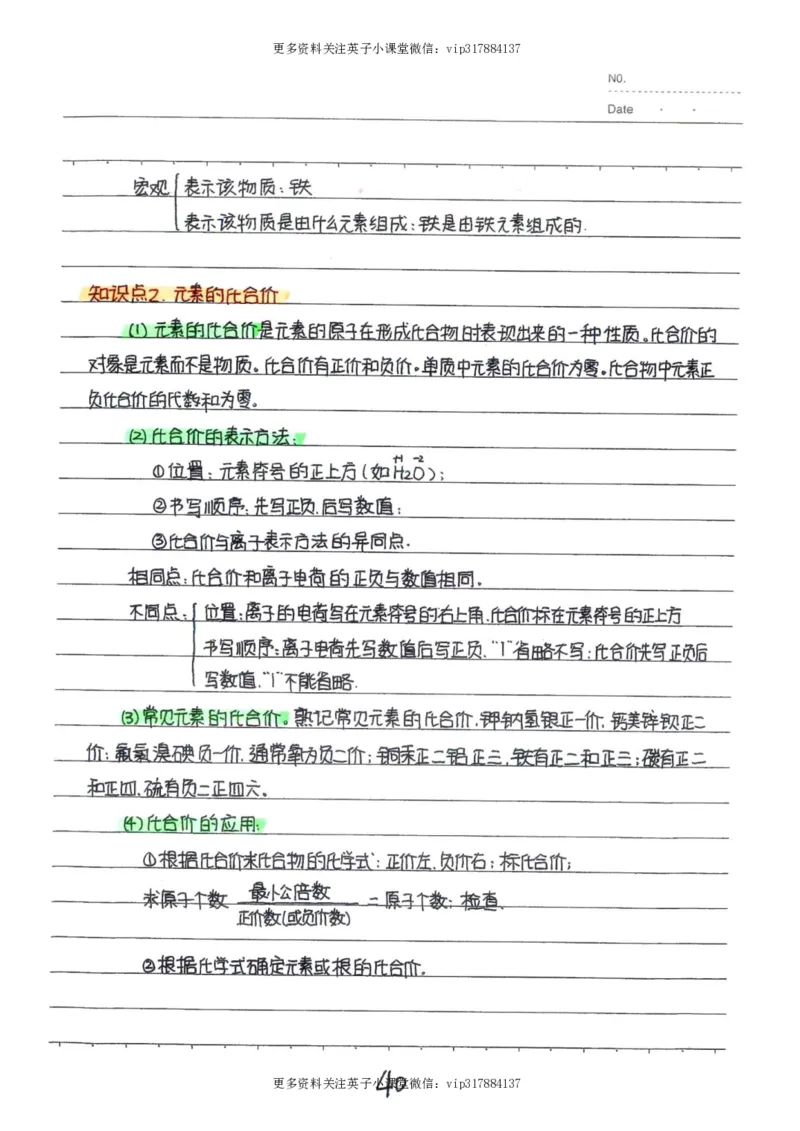 更多资料关注英子小课堂微信：vip317884137
NO.
Date
宏观 表示该物质：铁
表示该物质是由什么元素组成：铁是由铁元素组成的.
知识点2. 元素的化合价
(1) 元素的化合价是元素的原子在形成化合物时表现出来的一种性质。化合价的
对象是元素而不是物质。化合价有正价和负价。单质中元素的化合价为零。化合物中元素正
负化合价的代数和为零。
(2) 化合价的表示方法：
①位置：元素符号的正上方(如H₂O)；
+1 -2
②书写顺序：先写正负,后写数值；
③化合价与离子表示方法的异同点.
相同点：化合价和离子电荷的正负与数值相同。
不同点： 位置：离子的电荷写在元素符号的右上角,化合价标在元素符号的正上方
书写顺序：离子电荷先写数值后写正负,"1"省略不写；化合价先写正负后
写数值,"1"不能省略.
(3)常见元素的化合价。熟记常见元素的化合价,钾钠氢银正一价,钙美锌钡正二
价；氟氯溴碘负一价,通常氧为负二价；铜汞正二铝正三,铁有正二和正三；碳有正二
和正四,硫有负二正四六。
(4)化合价的应用：
①根据化合价求化合物的化学式：正价左,负价右；标化合价；
求原子个数 最小公倍数/正价数(或负价数) =原子个数；检查.
②根据化学式确定元素或根的化合价.
更多资料关注英子小课堂微信：vip317884137
40